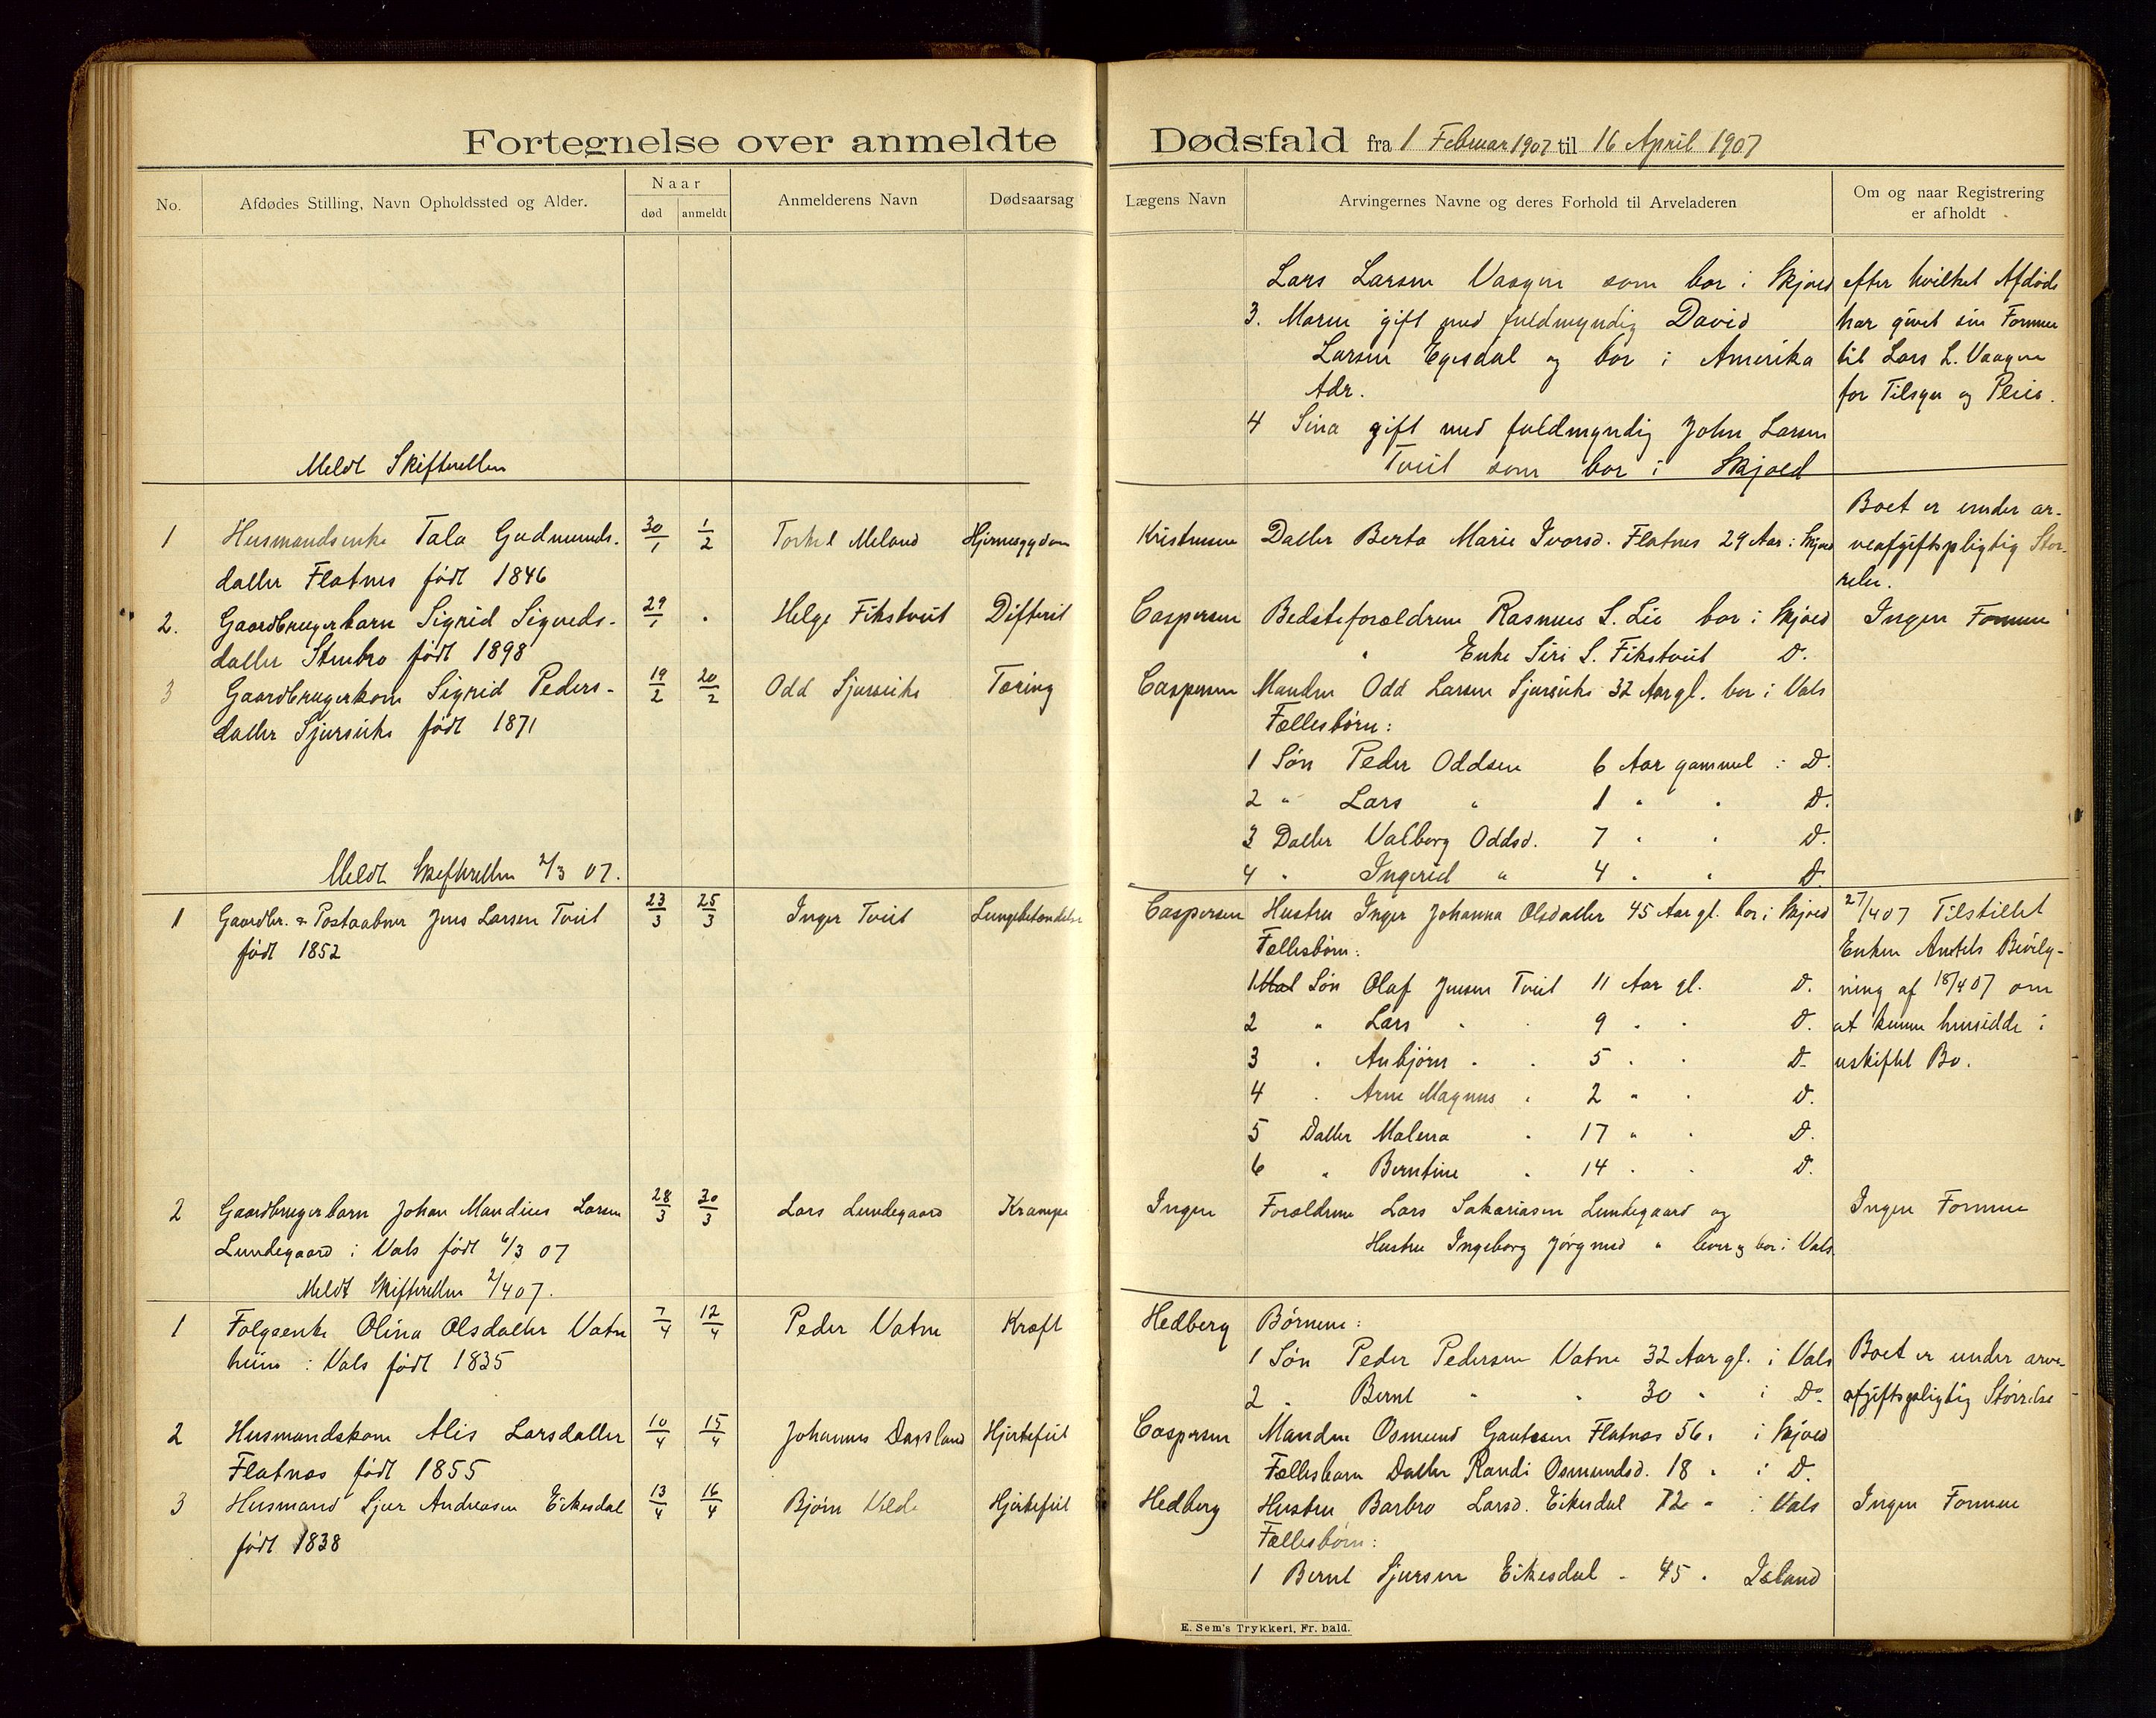 Fortegnelse over anmeldte Dødsfald fra 1 Februar 1907 til 16 April 1907
No.
Afdødes Stilling, Navn Opholdssted og Alder.
Naar
død
anmeldt
Anmelderens Navn
Dødsaarsag
Lægens Navn
Arvingernes Navne og deres Forhold til Arveladeren
Om og naar Registrering
er afholdt
Lars Larsen Vaagen som bor i Skjold
3. Maren gift med fuldmyndig David
Larsen Egesdal og bor i Amerika
Adr.
4 Sina gift med fuldmyndig John Larsen
Tveit som bor i Skjold
efter hvilket Afdøde
har givet sin Formue
til Lars L. Vaagen
for Tilsyn og Pleie.
Meldt Skifteretten
1 Husmandsenke Tala Gudmunds-
datter Flatnes født 1846
30/1 1/2 Torkel Meland
Kristensen Datter Berta Marie Ivarsd. Flatnes 29 Aar i Skjold
Boet er under ar-
veafgiftspligtig Stør-
relse.
2. Gaardbrugerbarn Sigrid Sigveds-
datter Stenbro født 1898
29/1 " Helge Fikstveit Difterit
Caspersen Bedsteforældrene Rasmus S. Lie bor i Skjold
" Enke Siri S. Fikstveit D.
Ingen Formue
3 Gaardbrugerkone Sigrid Peders-
datter Sjurseike født 1871
19/2 20/2 Odd Sjurseike Tæring
Caspersen Manden Odd Larsen Sjurseike 32 Aar gl. bor i Vats
Fællesbørn:
1 Søn Peder Oddsen 6 Aar gammel i D.
2 " Lars " 1 " " D.
3 Datter Valborg Oddsd. 7 " " D.
4 " Ingerid " 4 " " D.
Meldt Skifteretten 2/3 07.
1 Gaardbr. & Postaabner Jens Larsen Tveit
født 1852
23/3 25/3 Inger Tveit Lungebetændelse
Caspersen Hustru Inger Johanna Olsdatter 45 Aar gl. bor i Skjold
Fællesbørn:
1 Søn Olaf Jensen Tveit 11 Aar gl. D.
2 " Lars " " 9 " " D.
3 " Anbjørn " " 5 " " D.
4 " Arne Magnus " 2 " " D.
5 Datter Malena " 17 " " D.
6 " Berntine " 14 " " D.
27/4 07 Tilstillet
Enken Amtets Bevilg-
ning af 18/4 07 om
at kunne hensidde i
uskiftet Bo.
2 Gaardbrugerbarn Johan Mandius Larsen
Lundegaard i Vats født 6/3 07
28/3 30/3 Lars Lundegaard Krampe
Ingen Forældrene Lars Sakariasen Lundegaard og
Hustru Ingeborg Jørgine " lever og bor i Vats
Ingen Formue
Meldt Skifteretten 2/4 07.
1 Folgeenke Olina Olsdatter Vatne
heim i Vats født 1835
7/4 12/4 Peder Vatne Kræft
Hedberg Børnene:
1 Søn Peder Pedersen Vatne 32 Aar gl. i Vats
2 " Bernt " " 30 " i Do
Boet er under arve-
afgiftspligtig Størrelse
2 Husmandskone Alis Larsdatter
Flatnæs født 1855
10/4 15/4 Johannes Dagsland Hjertefeil
Caspersen Manden Osmund Gautesen Flatnæs 56 " i Skjold
Fællesbarn Datter Randi Osmundsd. 18 " i D.
3 Husmand Sjur Andreasen Eikesdal
født 1838
13/4 16/4 Bjørn Hjertefeil
Hedberg Hustru Barbro Larsd. Eikesdal 72 " i Vats
Fællesbørn:
1 Bernt Sjursen Eikesdal - 45 " Island
Ingen Formue
E. Sem's Trykkeri, Fr. hald.